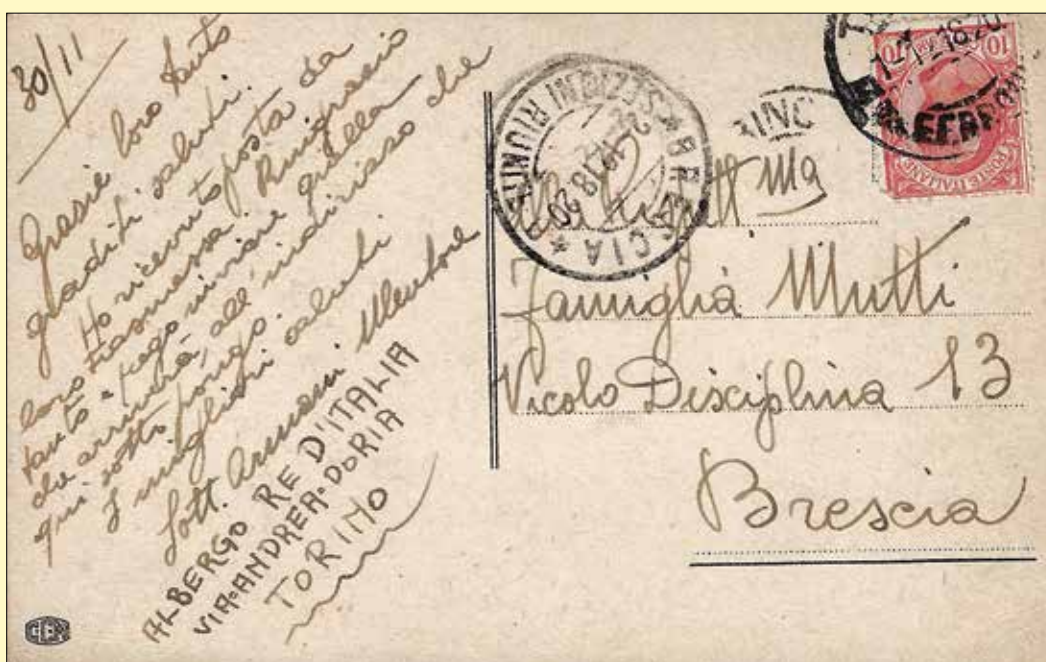 30/11
Grazie loro tanto
graditi saluti.
Ho ricevuto posta da
loro trasmessa. Ringrazio
tanto e prego inviare quella che
che arriverà, all'indirizzo
qui sotto pongo.
I migliori saluti
Sott. Armani Mentore
ALBERGO RE D'ITALIA
VIA·ANDREA·DORIA
TORINO
BRESCIA
SEZIONI RIUNITE
2-12 18 20
RINO
1-12 18 20
10 10
POSTE ITALIANE
Famiglia Mutti
Vicolo Disciplina 13
Brescia